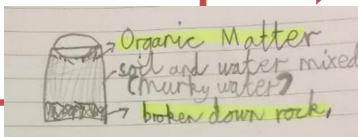 Organic Matter
soil and water mixed
(murky water)
broken down rock,